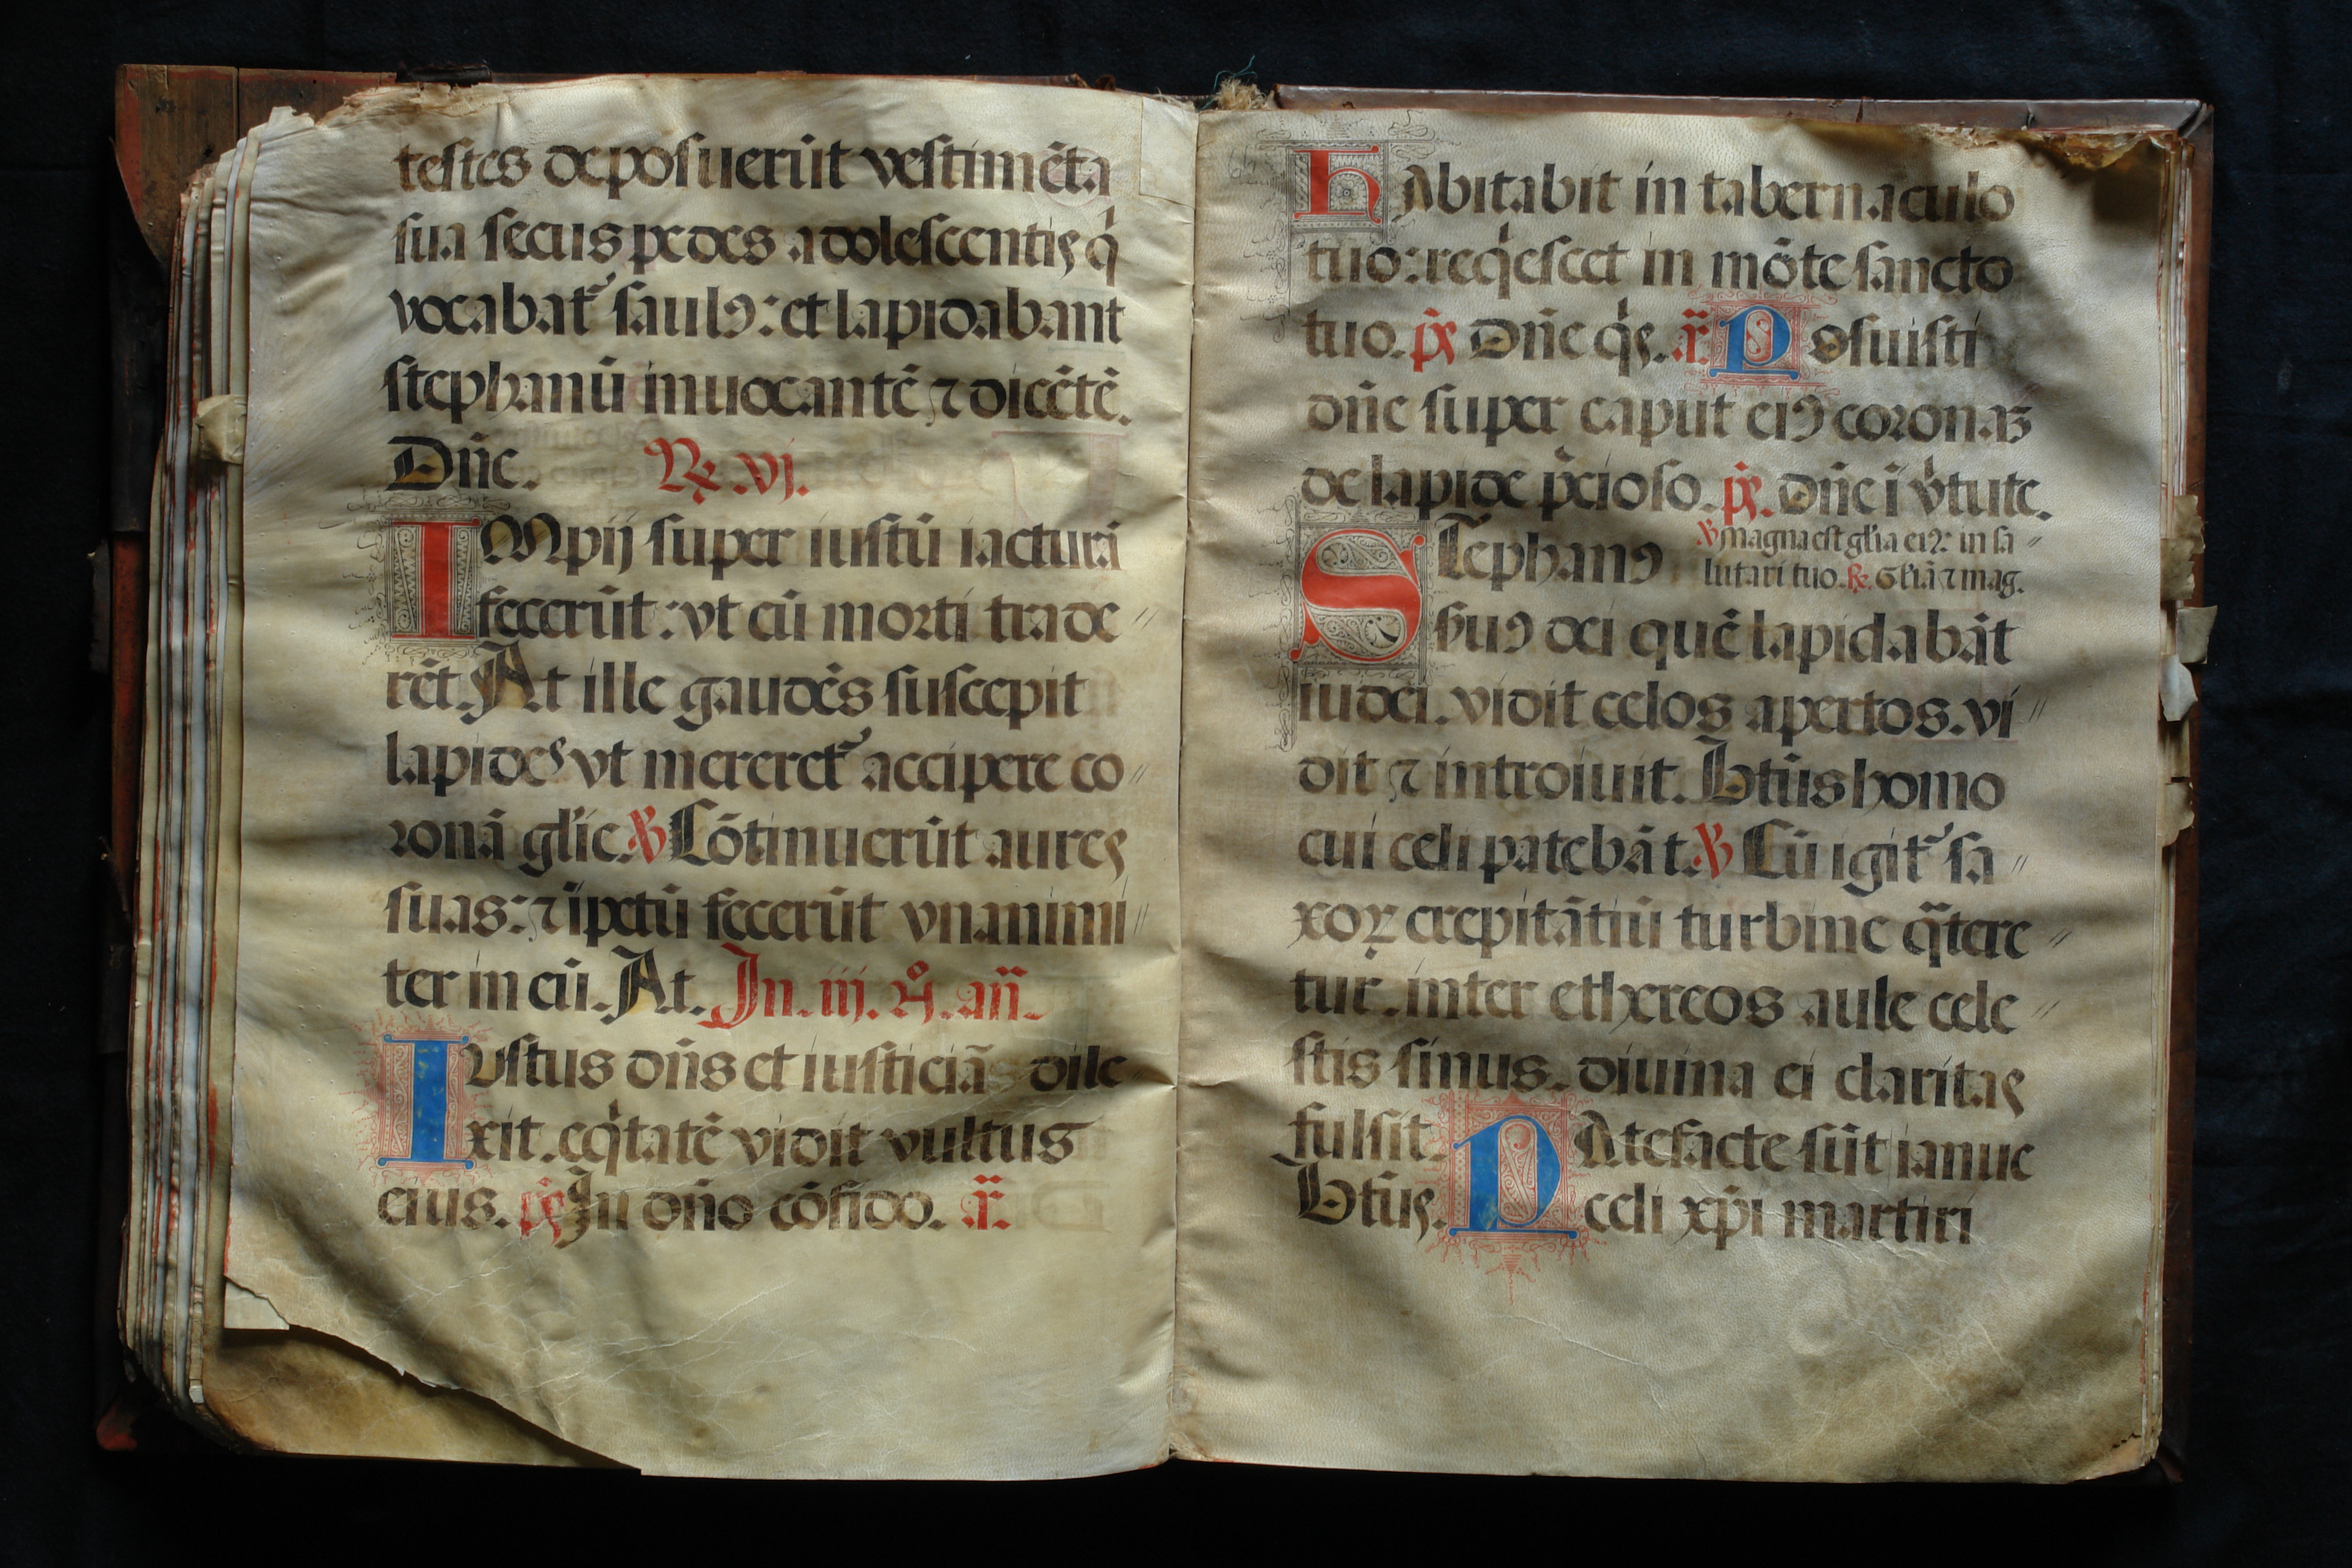 testes deposuerūt vestimēta
sua secus pedes adolescentis qͥ
vocabat᷑ saulꝰ: et lapidabant
stephanū inuocantē ⁊ dicētē.
Dn̄e. R͛. vj.
IMpij super iustū iacturā
fecerūt: vt eū morti trade
rēt. At ille gaudēs suscepit
lapides vt mereret᷑ accipere co
ronā glīe. ℣ Cōtinuerūt aures
suas: ⁊ īpetū fecerūt vnanimi
ter in eū. At. In. iij. nͦ. an̄.
IVstus dn̄s et iusticiā dile
xit. eqͥtatē vidit vultus
eius. p̄s In dn̄o cōfido. a͞.
HAbitabit in tabernaculo
tuo: reqͥescet in mōte sancto
tuo. p̄s Dn̄e qͥs. a͞. Posuisti
dn̄e super caput eiꝰ coronaꝫ
de lapide p̄cioso. p̄s. Dn̄e ī vͥtute.
STephanꝰ ℣ Magna est glīa eiꝰ: in sa
lutari tuo. R͛. Glīā ⁊ mag.
ẜuꝰ dei quē lapidabāt
iudei. vidit celos apertos. vi
dit ⁊ introiuit. Btūs homo
cui celi patebāt. ℣ Cū igit᷑ sa
xoꝝ crepitātiū turbine qͣtere
tur. inter ethereos aule cele
stis sinus. diuina ei claritas
fulsit. PAtefacte sūt ianue
Btūs. celi xp̄i martiri